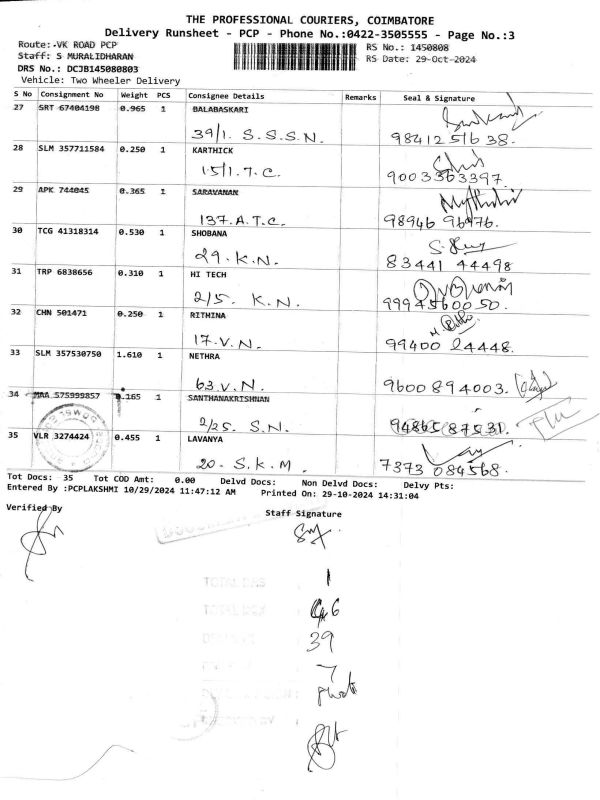 THE PROFESSIONAL COURIERS, COIMBATORE
Delivery Runsheet - PCP - Phone No.:0422-3505555 - Page No.:3
Route:-VK ROAD PCP
RS No.: 1450808
Staff: S MURALIDHARAN
RS Date: 29-Oct-2024
DRS No.: DCJB145080803
Vehicle: Two Wheeler Delivery
S No Consignment No Weight PCS Consignee Details Remarks Seal & Signature
27 SRT 67404198 0.965 1 BALABASKARI
39/1. S.S.S.N. 98412 51638.
28 SLM 357711584 0.250 1 KARTHICK
15/1.T.C. 9003363397.
29 APK 744045 0.365 1 SARAVANAN
137.A.T.C. 98946 96976.
30 TCG 41318314 0.530 1 SHOBANA
29.K.N. 83441 44498
31 TRP 6838656 0.310 1 HI TECH
2/5. K.N. 9994560050.
32 CHN 501471 0.250 1 RITHINA
17.V.N. 99400 24448.
33 SLM 357530750 1.610 1 NETHRA
63.V.N. 9600894003.
34 MAA 575999857 0.165 1 SANTHANAKRISHNAN
2/25. S.N. 9486587531.
35 VLR 3274424 0.455 1 LAVANYA
20. S.K.M. 7373 084568.
Tot Docs: 35 Tot COD Amt: 0.00 Delvd Docs: Non Delvd Docs: Delvy Pts:
Entered By :PCPLAKSHMI 10/29/2024 11:47:12 AM Printed On: 29-10-2024 14:31:04
Verified By
Staff Signature
1
6
39